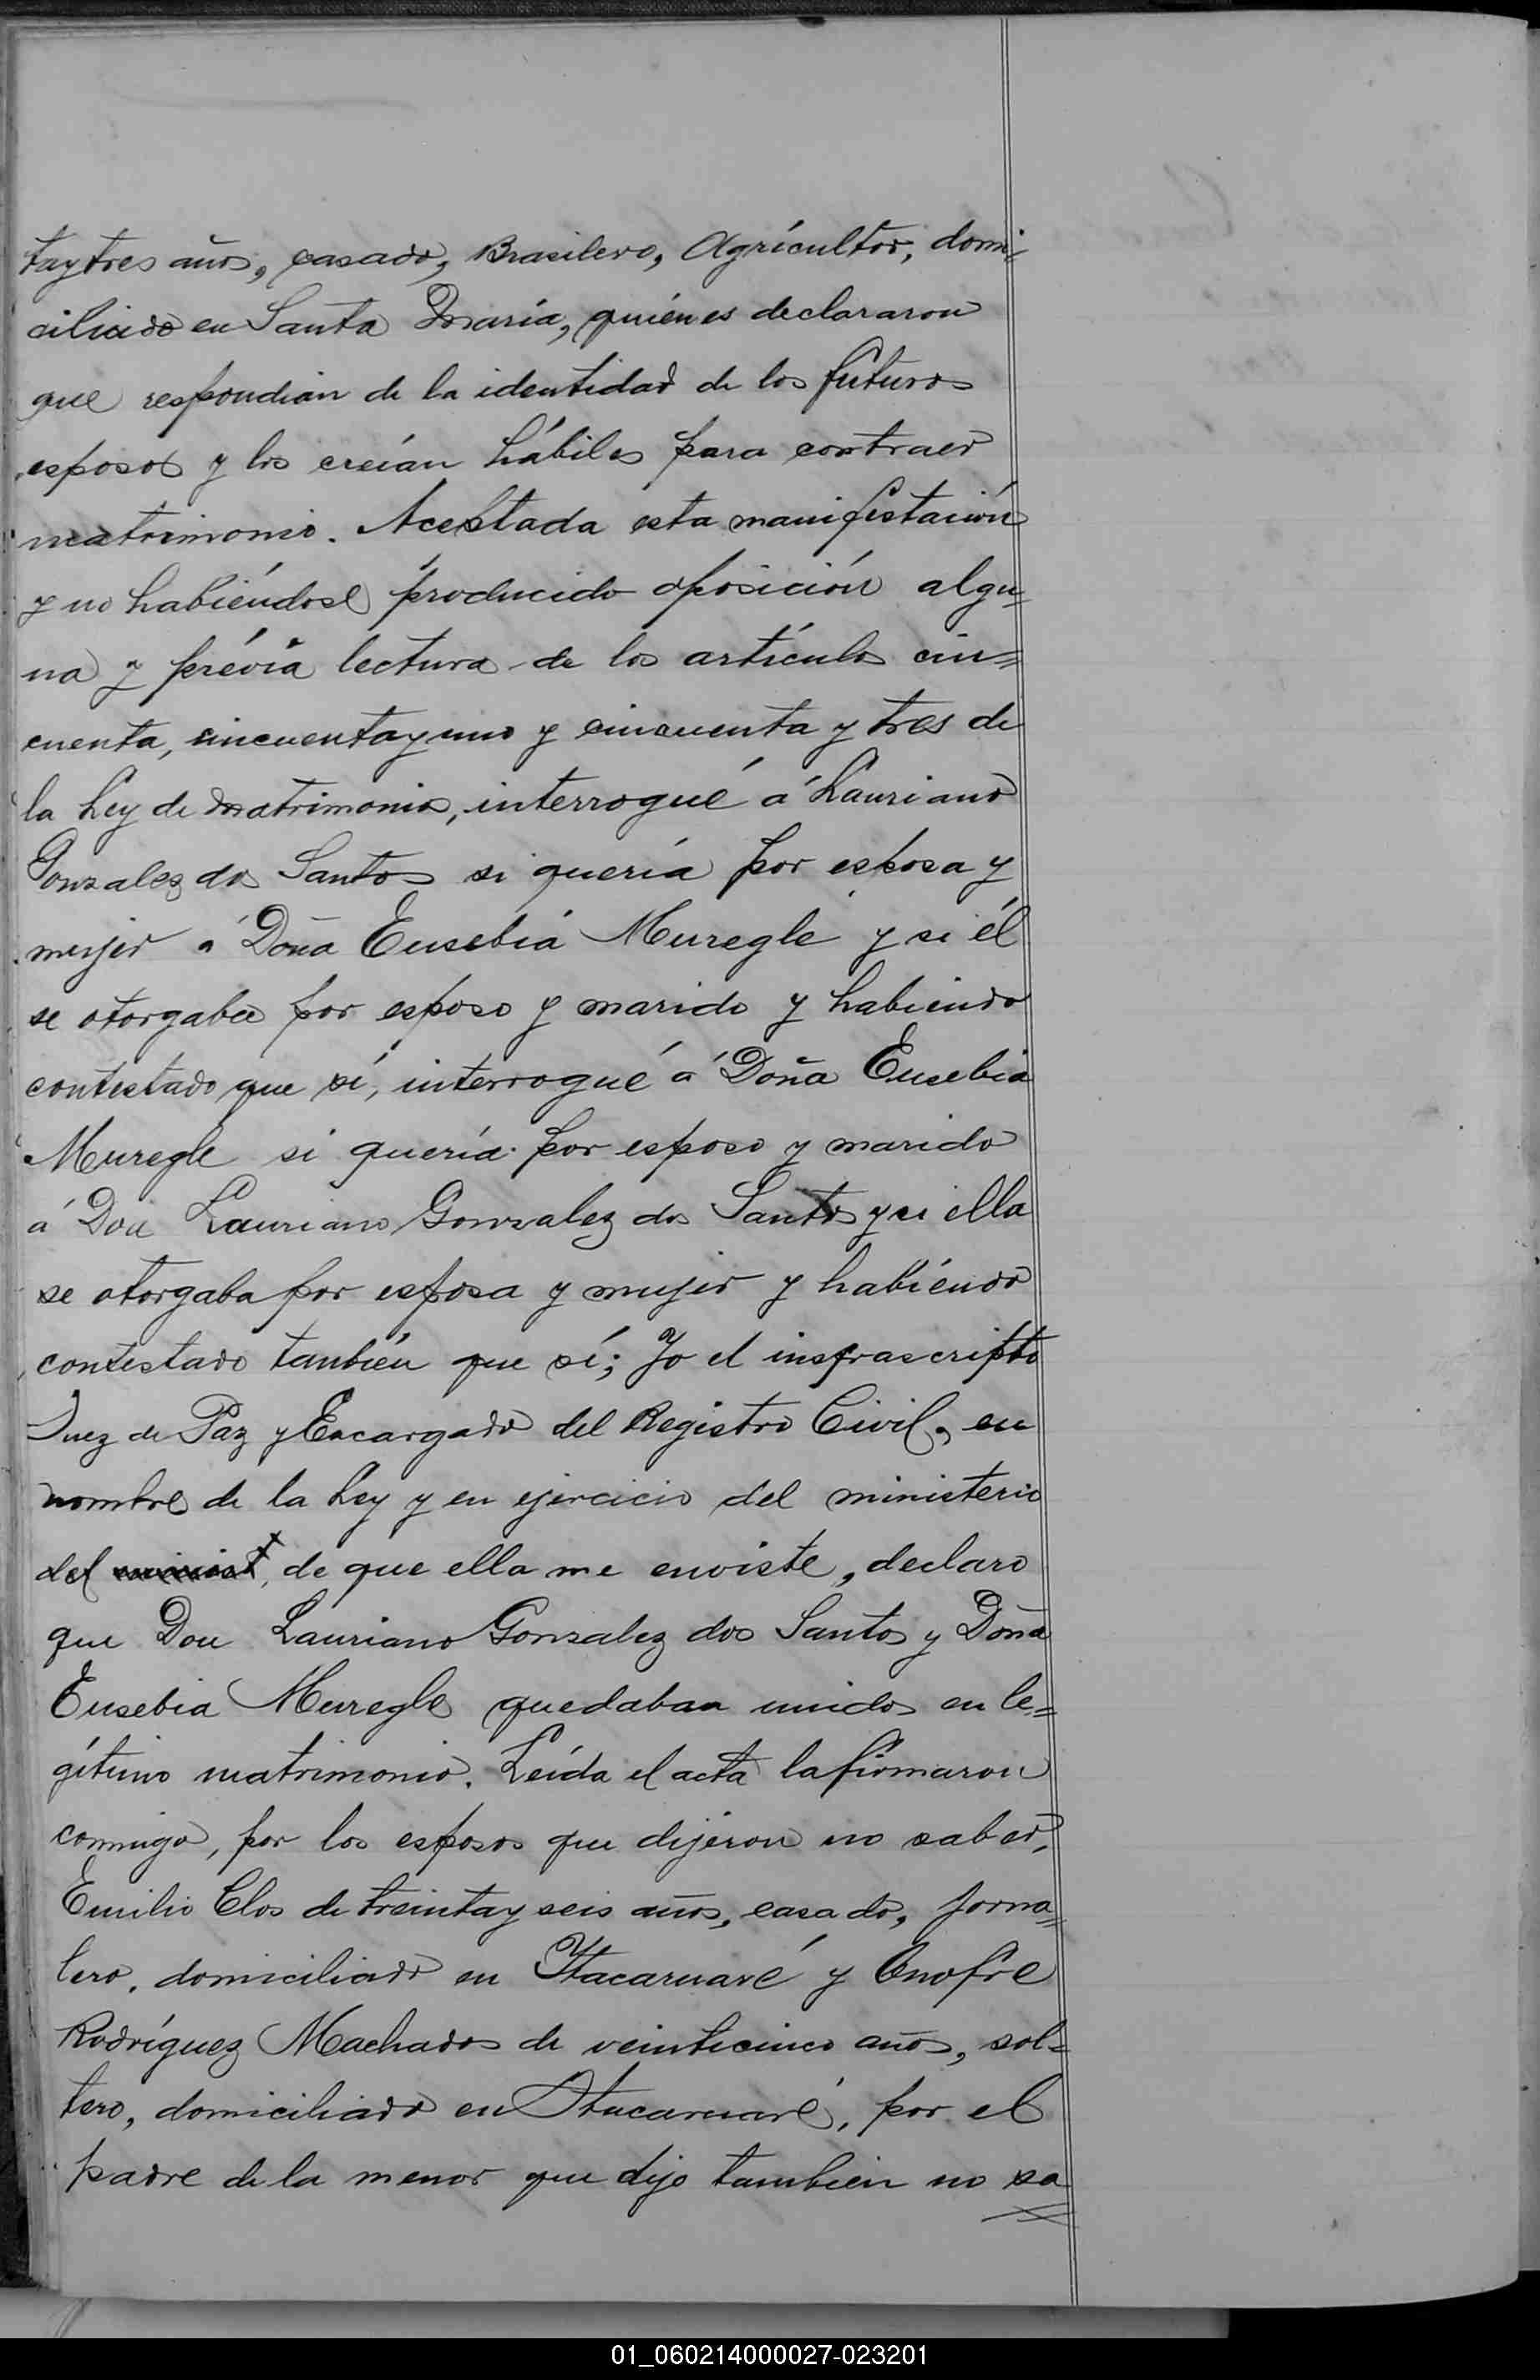 taytres años, casado, Brasilero, Agrícultor, domi-
ciliado en Santa María, quiénes declararon
que respondían de la identidad de los futuros
esposos y los creían hábiles para contraer
matrimonio. Aceptada esta manifestación
y no habiéndose producido oposición algu-
na y prévia lectura de los artículos cin=
cuenta, cincuentayuno y cincuenta y tres de
la Ley de Matrimonio, interrogué á Lauriano
Gonzalez dos Santos si quería por esposa y
mujer á Doña Eusebia Muregle y si él
se otorgaba por esposo y marido y habiendo
contestado que sí, interrogué á Doña Eusebia
Muregle si quería por esposo y marido
á Don Lauriano Gonzalez dos Santos y si ella
se otorgaba por esposa y mujer y habiéndo
contestado tanbién que sí; Yo el insfrascripto
Juez de Paz y Encargado del Registro Civil, en
nombre de la Ley y en ejercicio del ministerio
del de que ella me enviste, declaro
que Don Lauriano Gonzalez dos Santos y Doña
Eusebia Muregle quedaban unidos en le=
gítimo matrimonio. Leída el acta la firmaron
conmigo, por los esposos que dijeron no saber,
Emilio Clos de treintay seis años, casado, jorna=
lero, domiciliado en Ytacaruaré y Onofre
Rodríguez Machados de veinticinco años, sol=
tero, domiciliado en Itacaruaré, por el
padre de la menor que dijo tambien no sa
01_060214000027-023201